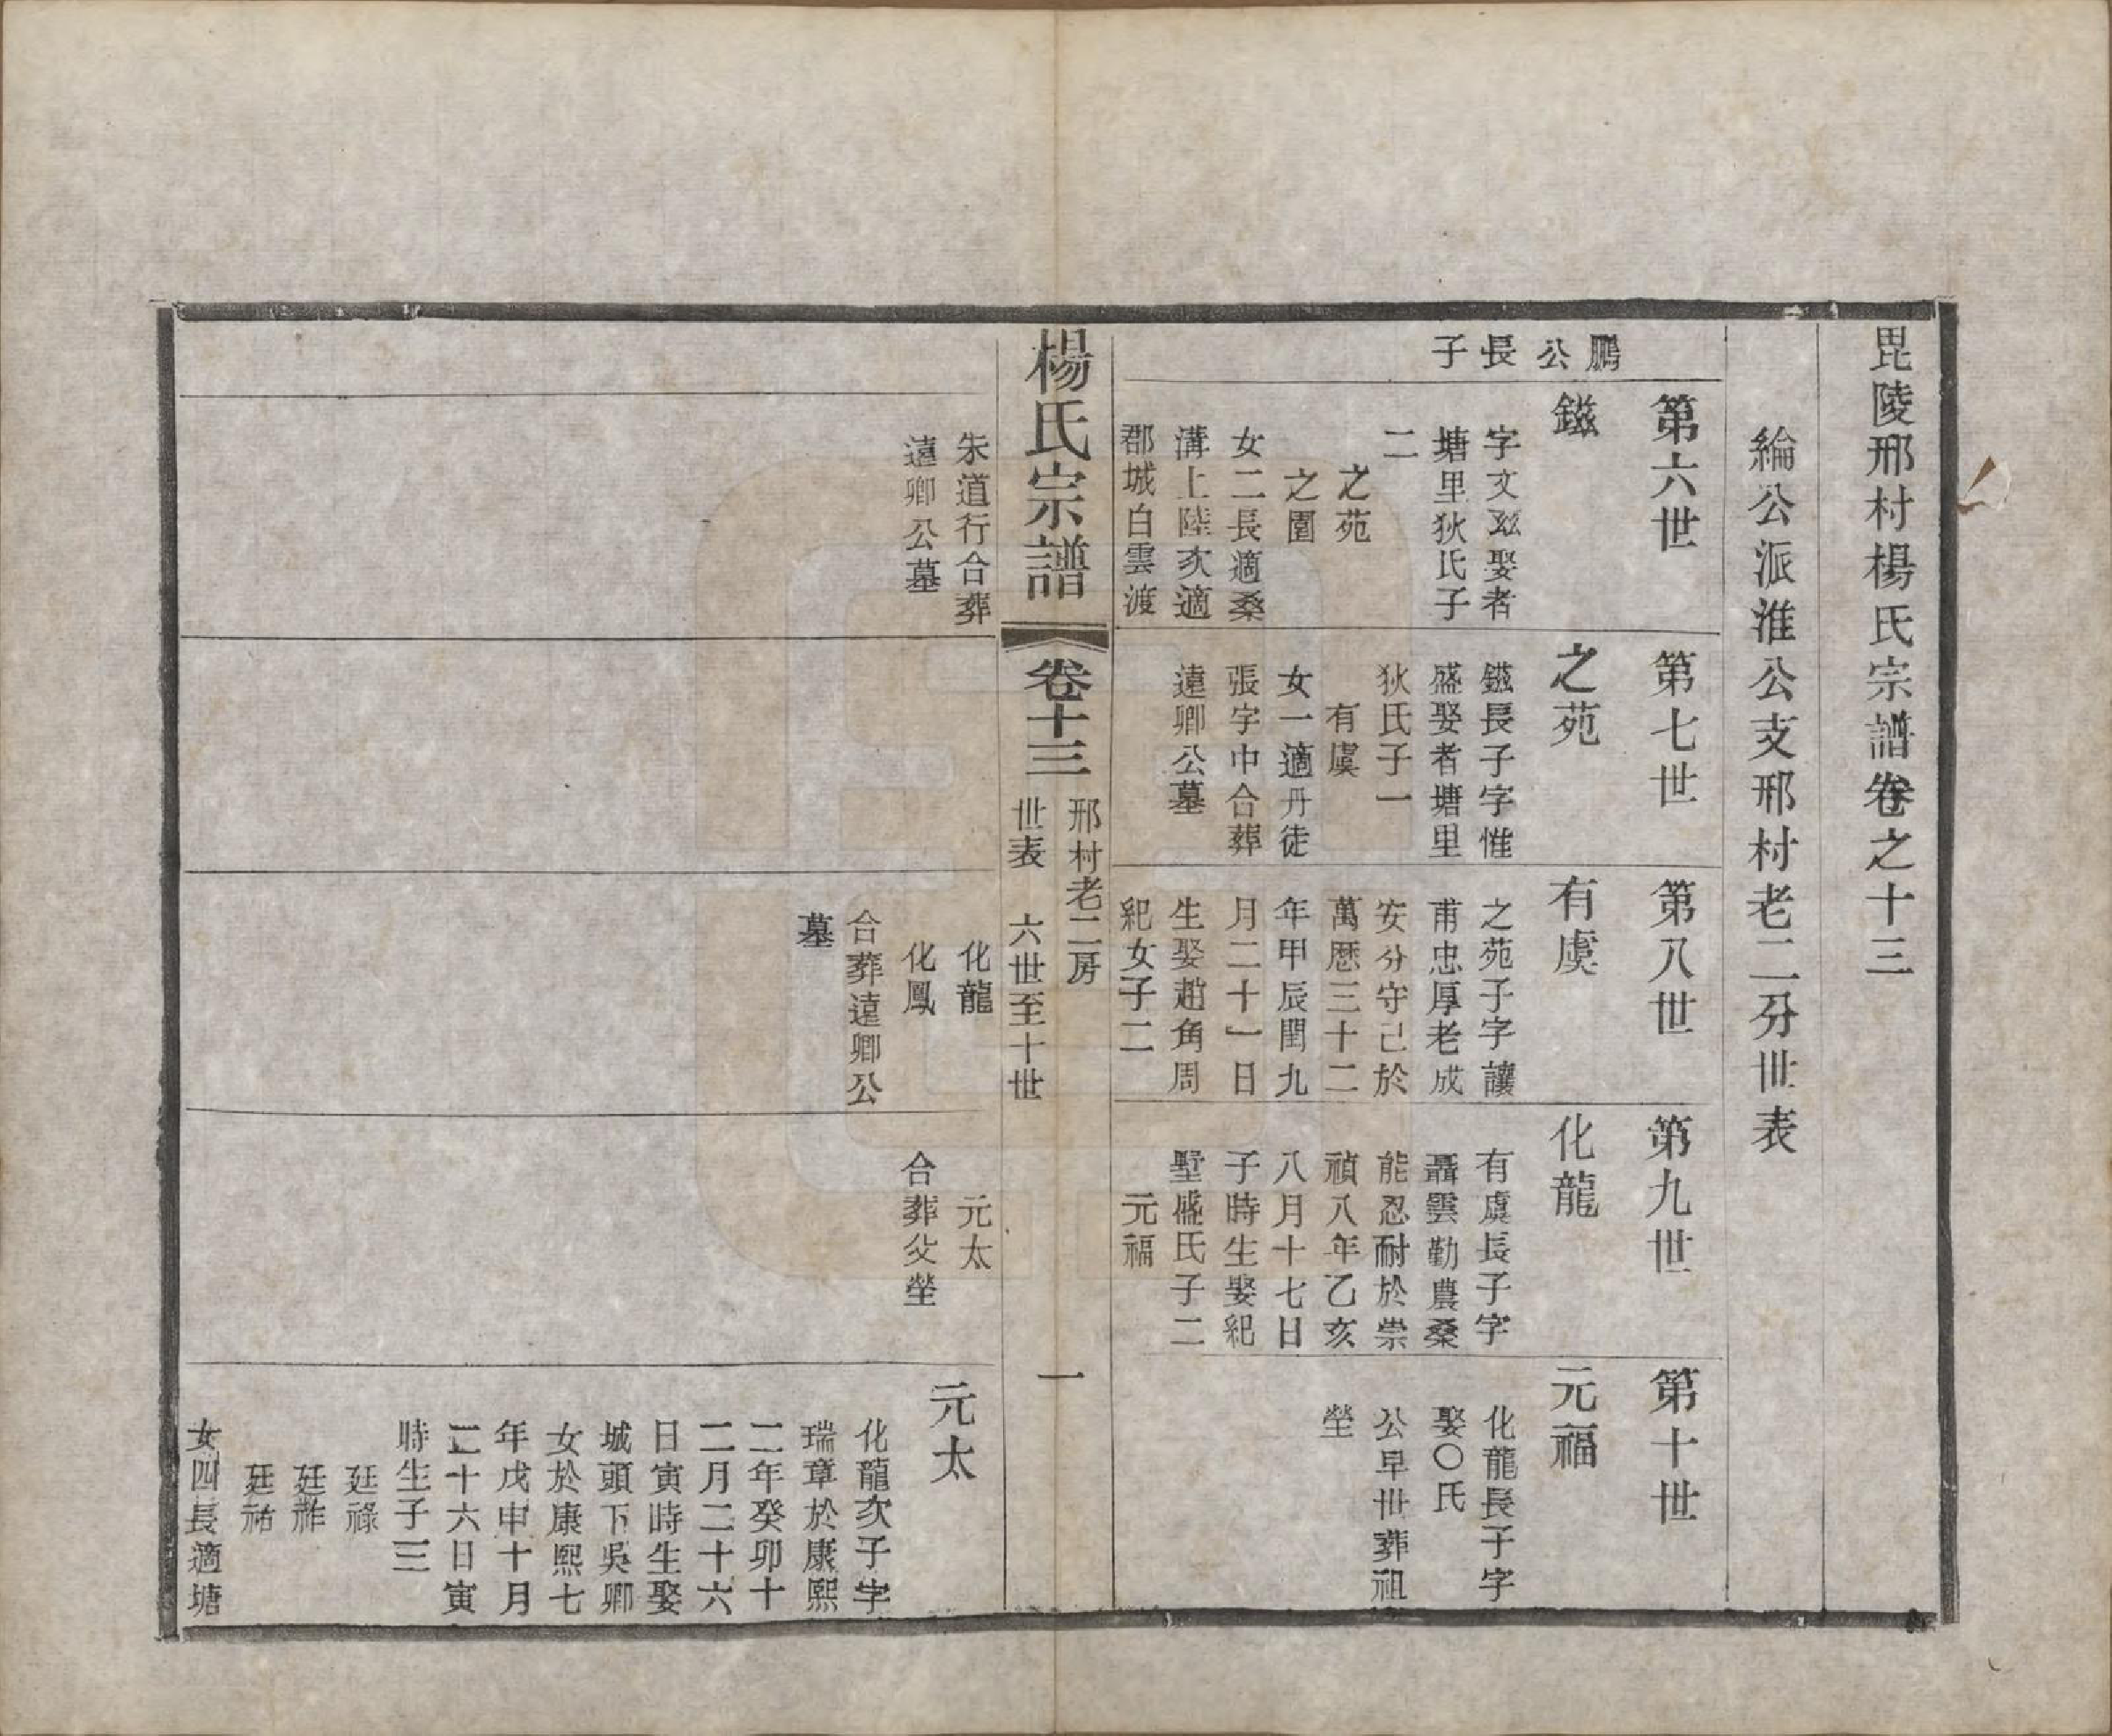 毘陵邢村楊氏宗譜卷之十三
綸公派淮公支邢村老二分世表
鵬
公
長
子
第六世
鎡
字文玆娶者
塘里狄氏子
二
之苑
之園
女二長適桑
溝上陸次適
郡城白雲渡
第七世
之苑
鎡長子字惟
盛娶者塘里
狄氏子一
有虞
女一適丹徒
張字中合葬
遠卿公墓
第八世
有虞
之苑子字讓
甫忠厚老成
安分守己於
萬歷三十二
年甲辰閏九
月二十一日
生娶趙角周
紀女子二
第九世
化龍
有虞長子字
聶雲勤農桑
能忍耐於崇
禎八年乙亥
八月十七日
子時生娶紀
墅盛氏子二
元福
第十世
元福
化龍長子字
娶〇氏
公早世葬祖
塋
楊氏宗譜
卷十三
邢村老二房
世表 六世至十世
一
朱道行合葬
遠卿公墓
化龍
化鳳
合葬遠卿公
墓
元太
合葬父塋
元太
化龍次子字
瑞章於康熙
二年癸卯十
二月二十六
日寅時生娶
城頭下吳卿
女於康熙七
年戊申十月
二十六日寅
時生子三
廷祿
廷祚
廷祐
女四長適塘